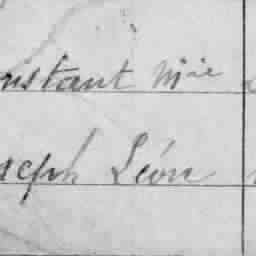 nstant Mie
seph Léon